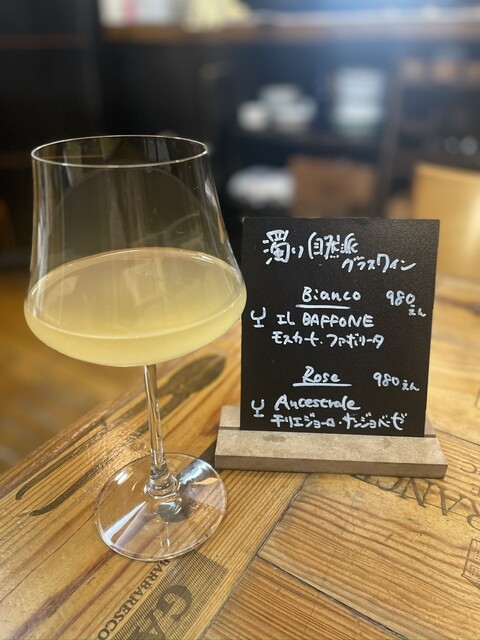 濁り自然派
グラスワイン
Bianco 980えん
IL BAFFONE
モスカート・ファボリータ
Rose 980えん
Ancestrale
チリエジョーロ・サンジョベーゼ
BARBARESCO
GA